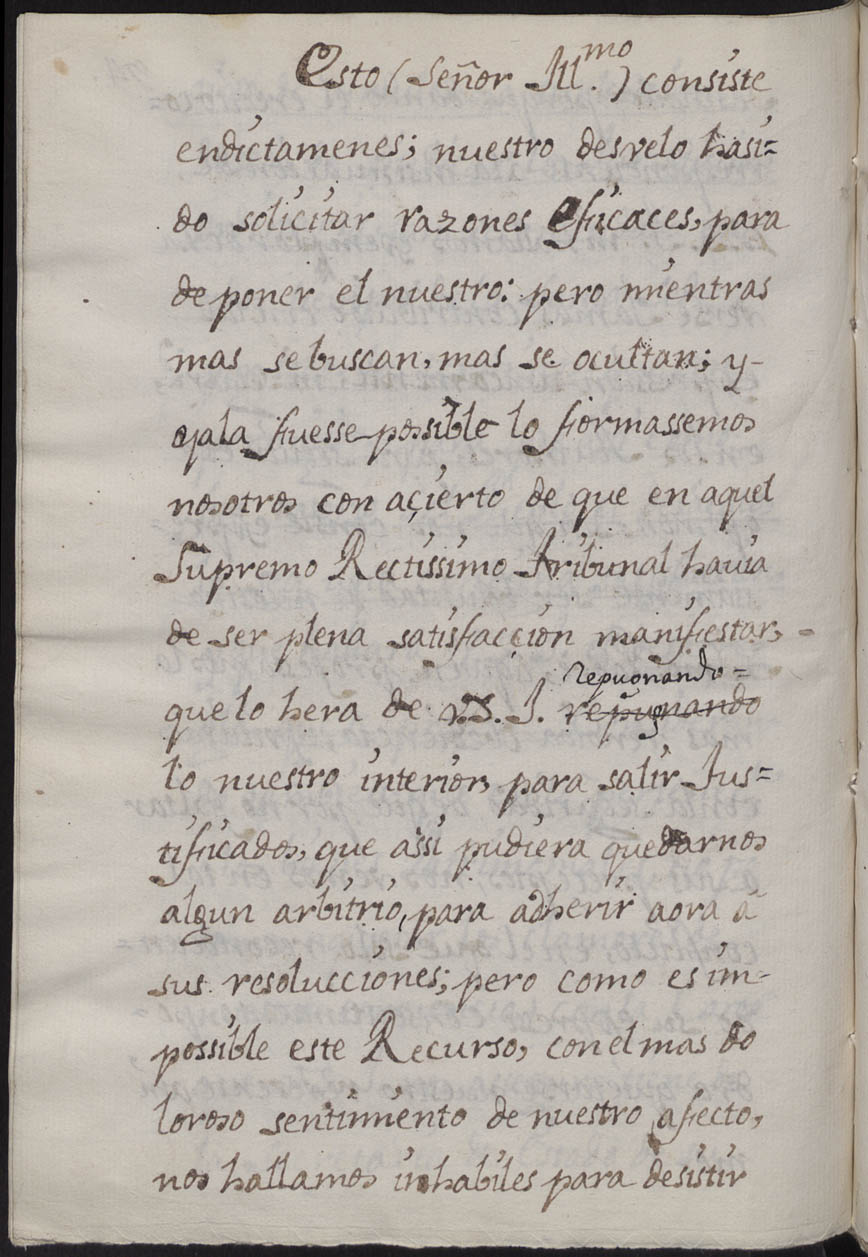 Esto (Señor Ill.mo) consiste
endictamenes; nuestro desvelo hasi=
do solicitar razones eficaces, para
de poner el nuestro: pero mientras
mas sebuscan, mas se ocultan; y-
ojala fuesse possible lo formassemos
nosotros con açierto de que en aquel
Supremo Rectissimo Tribunal havia
de ser plena satisfaccion manifestar,
repugnando=
quelo hera de V.S. I. repugnando
lo nuestro interior, para salir Jus=
tificados, que assi pudiera quedarnos
algun arbitrio, para adherir aora á
sus resolucciones; pero como es im-
possible este Recurso, conelmas do
loroso sentimiento de nuestro afecto,
nos hallamos inhabiles para desistir